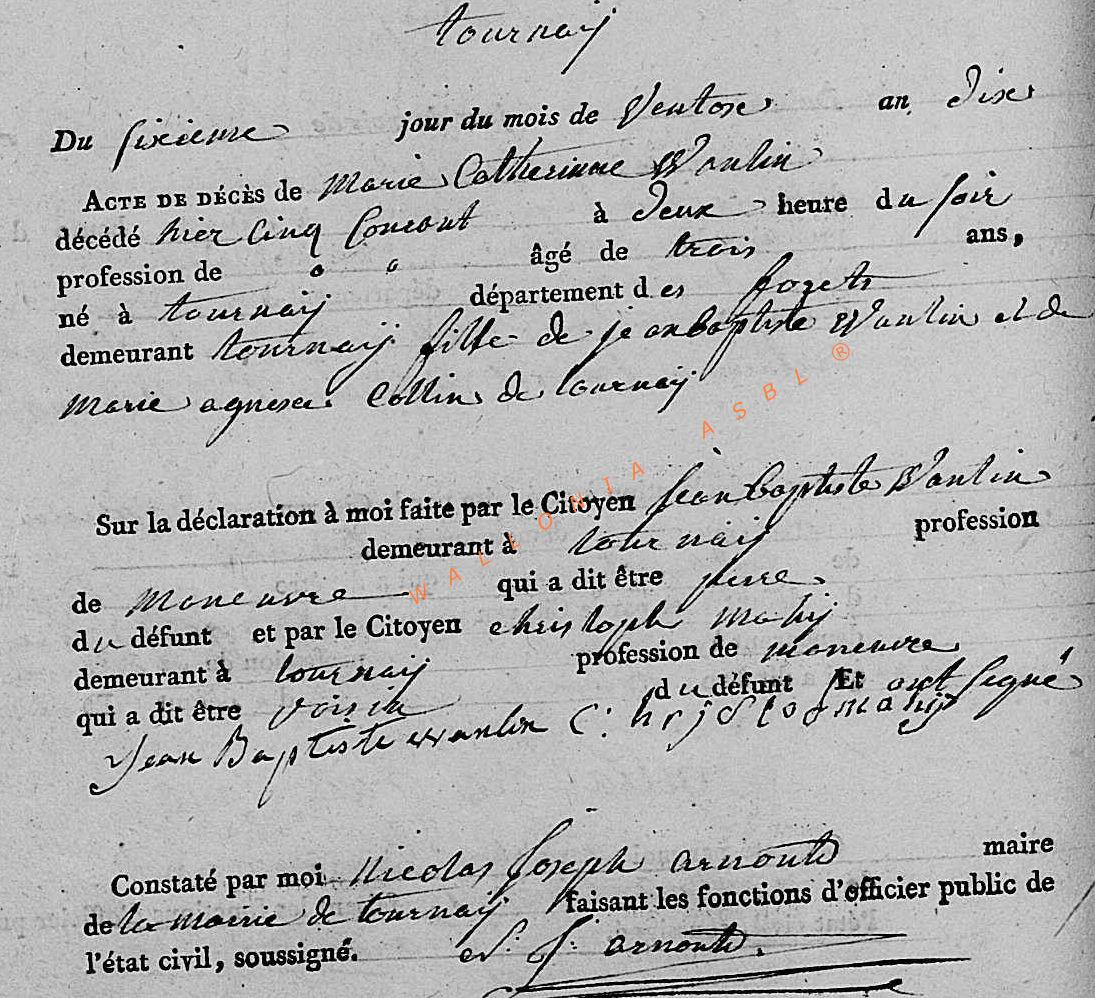 tournaij
Du sixieme jour du mois de Ventose an dixe
ACTE DE DÉCÈS de Marie Catherinne Wanlin
décédé hier cinq Courant à deux heure du soir
profession de o o âgé de trois ans,
né à tournaij département des forets
demeurant tournaij fille de jean baptiste Wanlin et de
Marie agnesce Collin de tournaij
Sur la déclaration à moi faite par le Citoyen Jean baptiste Wanlin
demeurant à tournaij profession
de maneuvre qui a dit être pere
du défunt et par le Citoyen christoph mahij
demeurant à tournaij profession de maneuvre
qui a dit être voisin du défunt Et ont signé
Jean Baptiste wanlin mahij
Constaté par moi Nicolas Joseph arnould maire
de la mairie de tournaij faisant les fonctions d'officier public de
l'état civil, soussigné. N. J. arnould.
WALLONIA ASBL ®